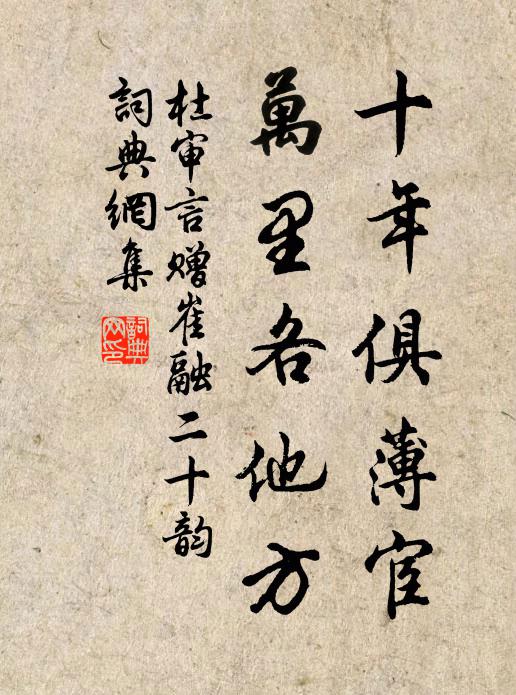 十年俱薄宦
萬里各他方
杜审言赠崔融二十韵
詞典網集
詞典網印